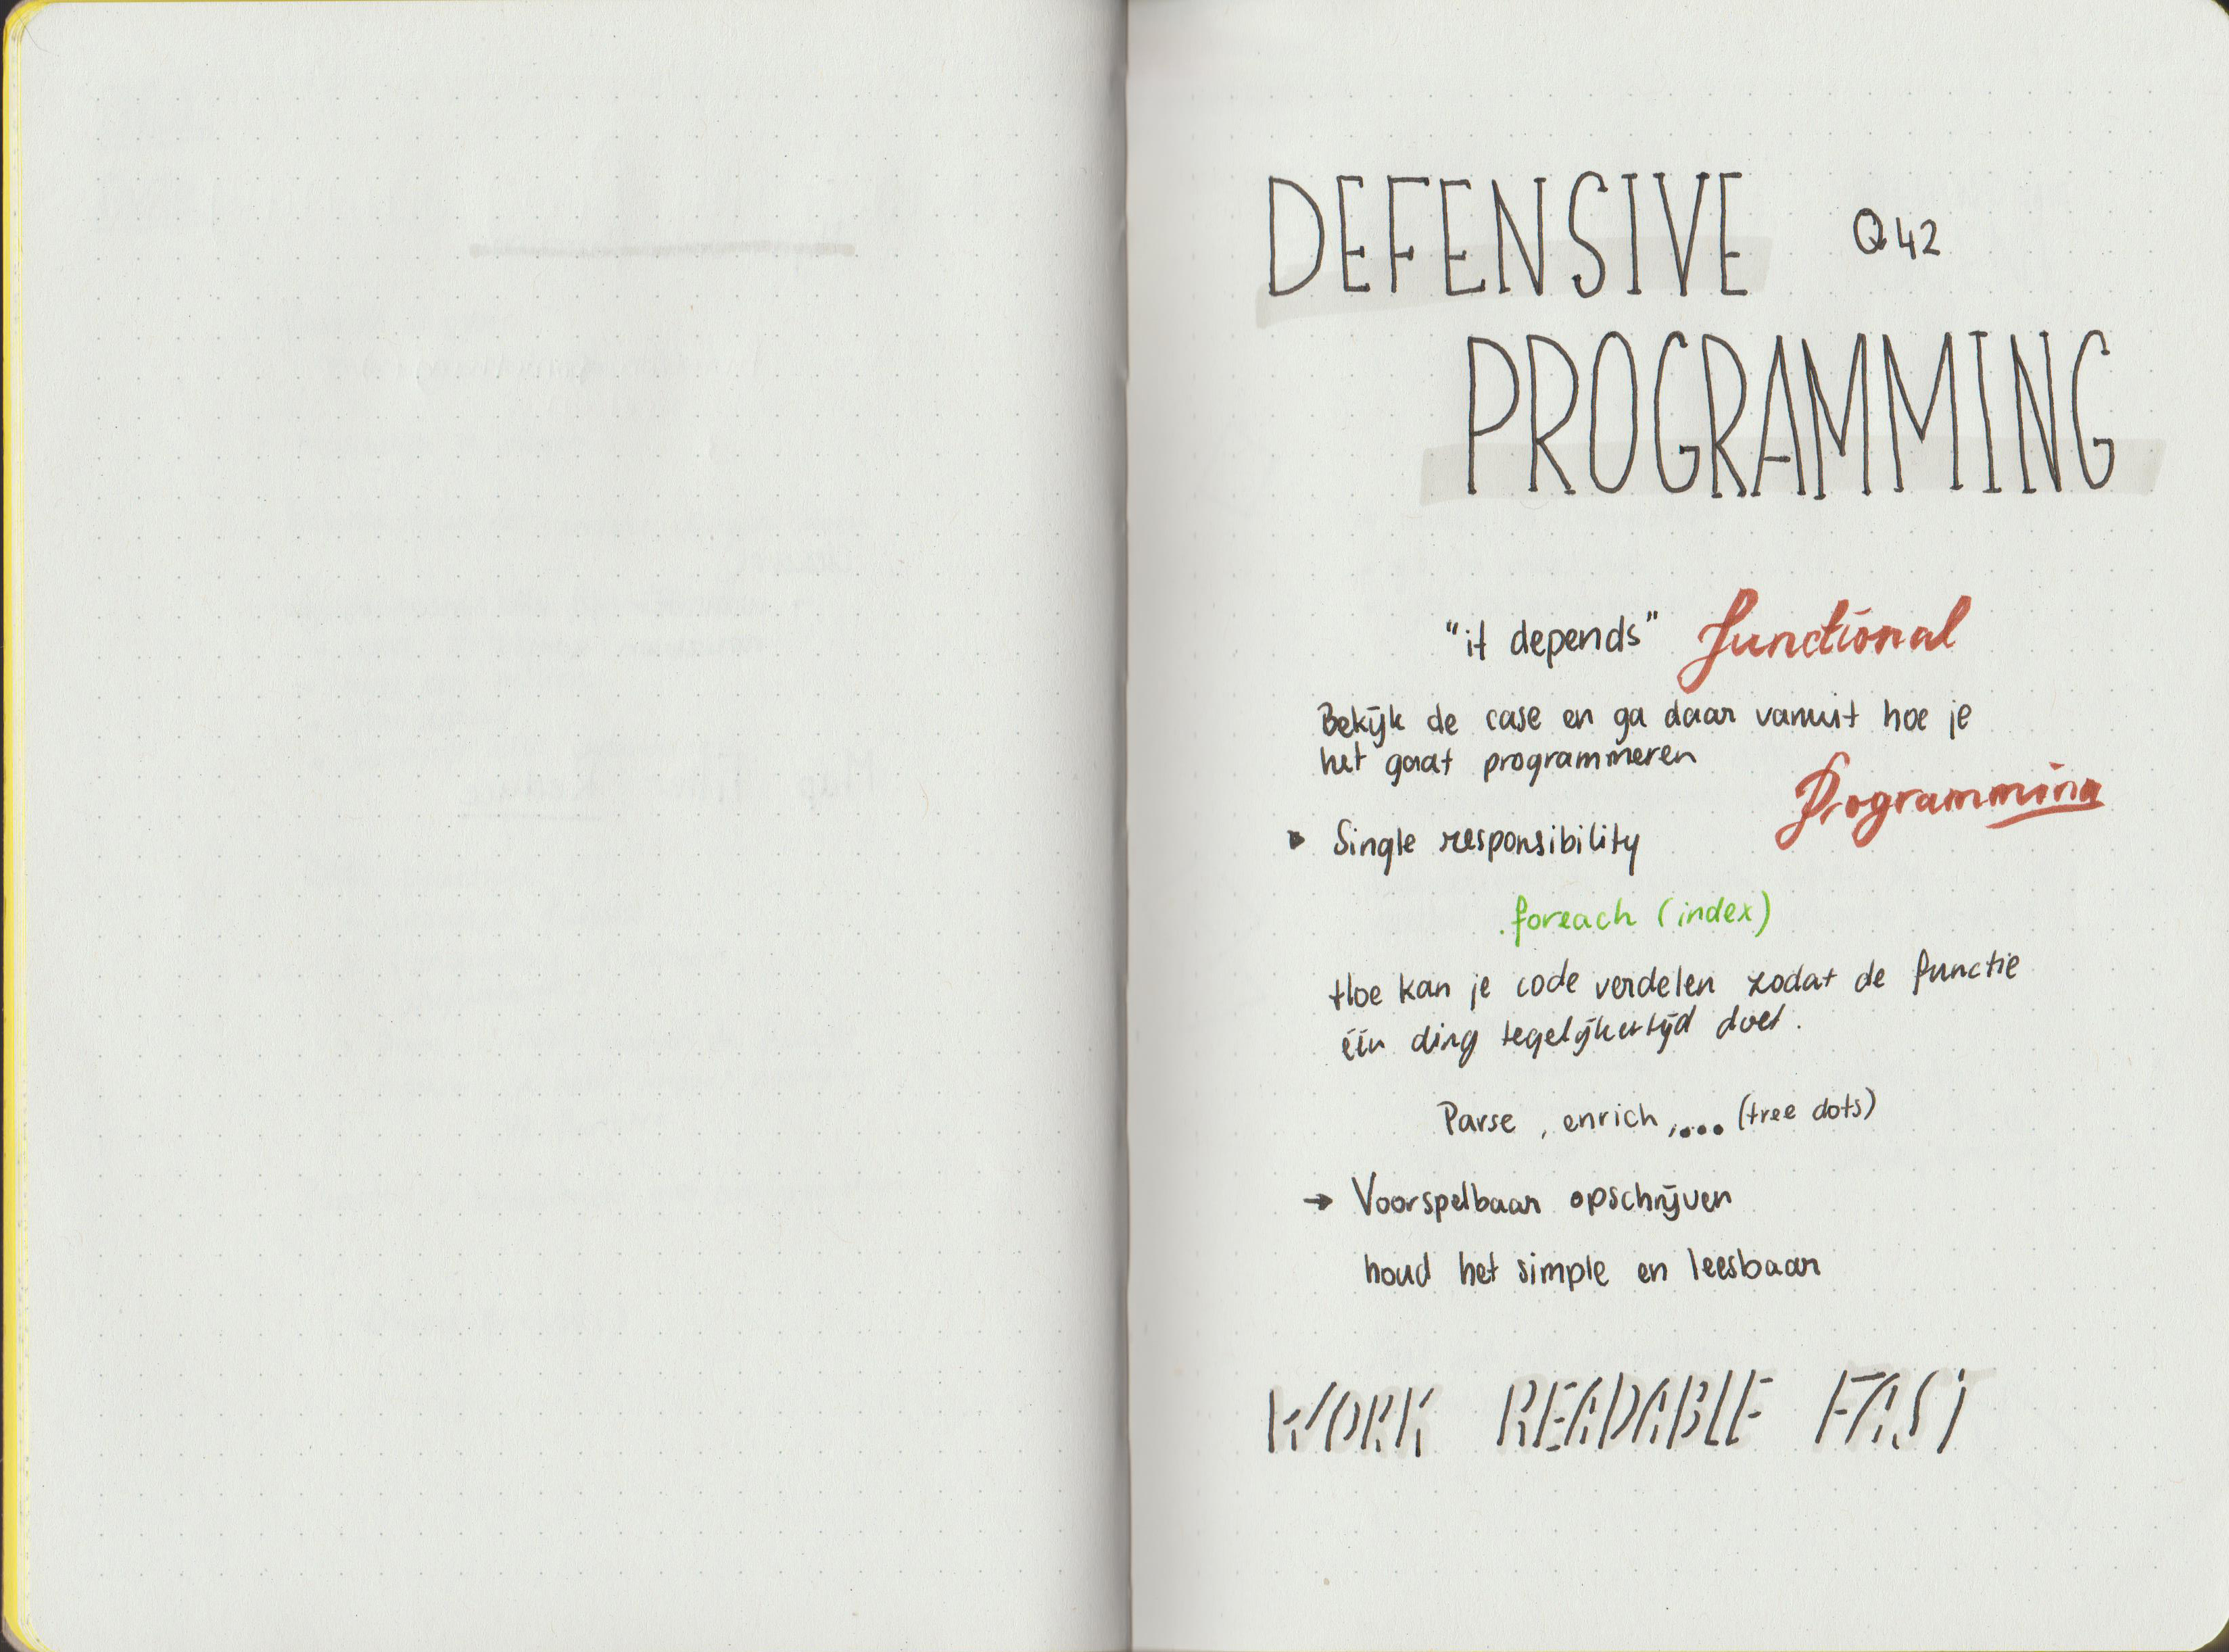 DEFENSIVE Q42
PROGRAMMING
"it depends" functional
Bekijk de case en ga daar vanuit hoe je
het gaat programmeren
Programming
Single responsibility
.foreach (index)
Hoe kan je code verdelen zodat de functie
één ding tegelijkertijd doet.
Parse , enrich ,... (tree dots)
→ Voorspelbaar opschrijven
houd het simple en leesbaar
WORK READABLE FAST